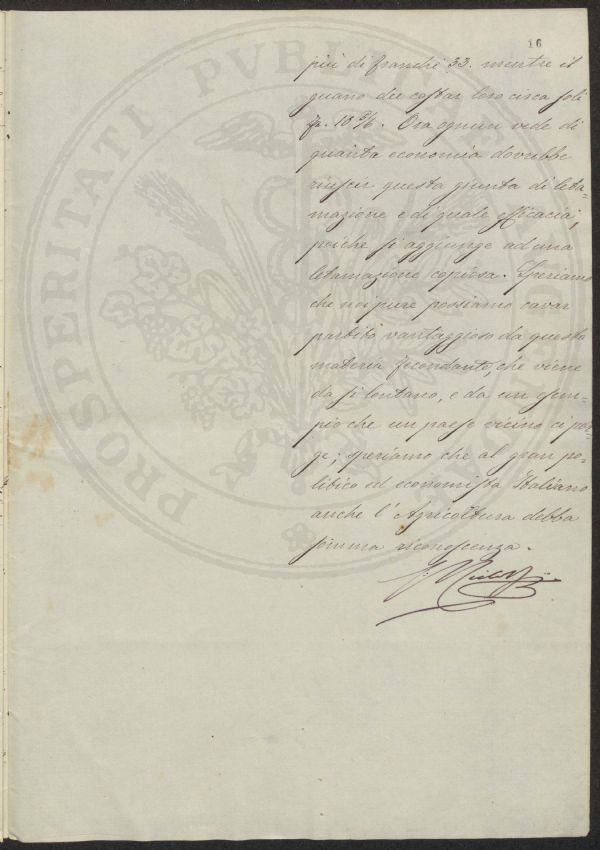 16
più di franchi 33. mentre il
guano dee costar loro circa soli
fr. 10 %. Ora ognun vede di
quanta economia dovrebbe
riuscir questa giunta di leta=
mazione e di quale efficacia,
poiche si aggiunge ad una
letamazione copiosa. Speriamo
che noi pure possiamo cavar
partito vantaggioso da questa
materia fecondante, che viene
da sì lontano, e da un esem=
pio che un paese vicino ci por=
ge; speriamo che al gran po=
litico ed economista Italiano
anche l'Agricoltura debba
somma riconoscenza.
PROSPERITATI PUBLICAE